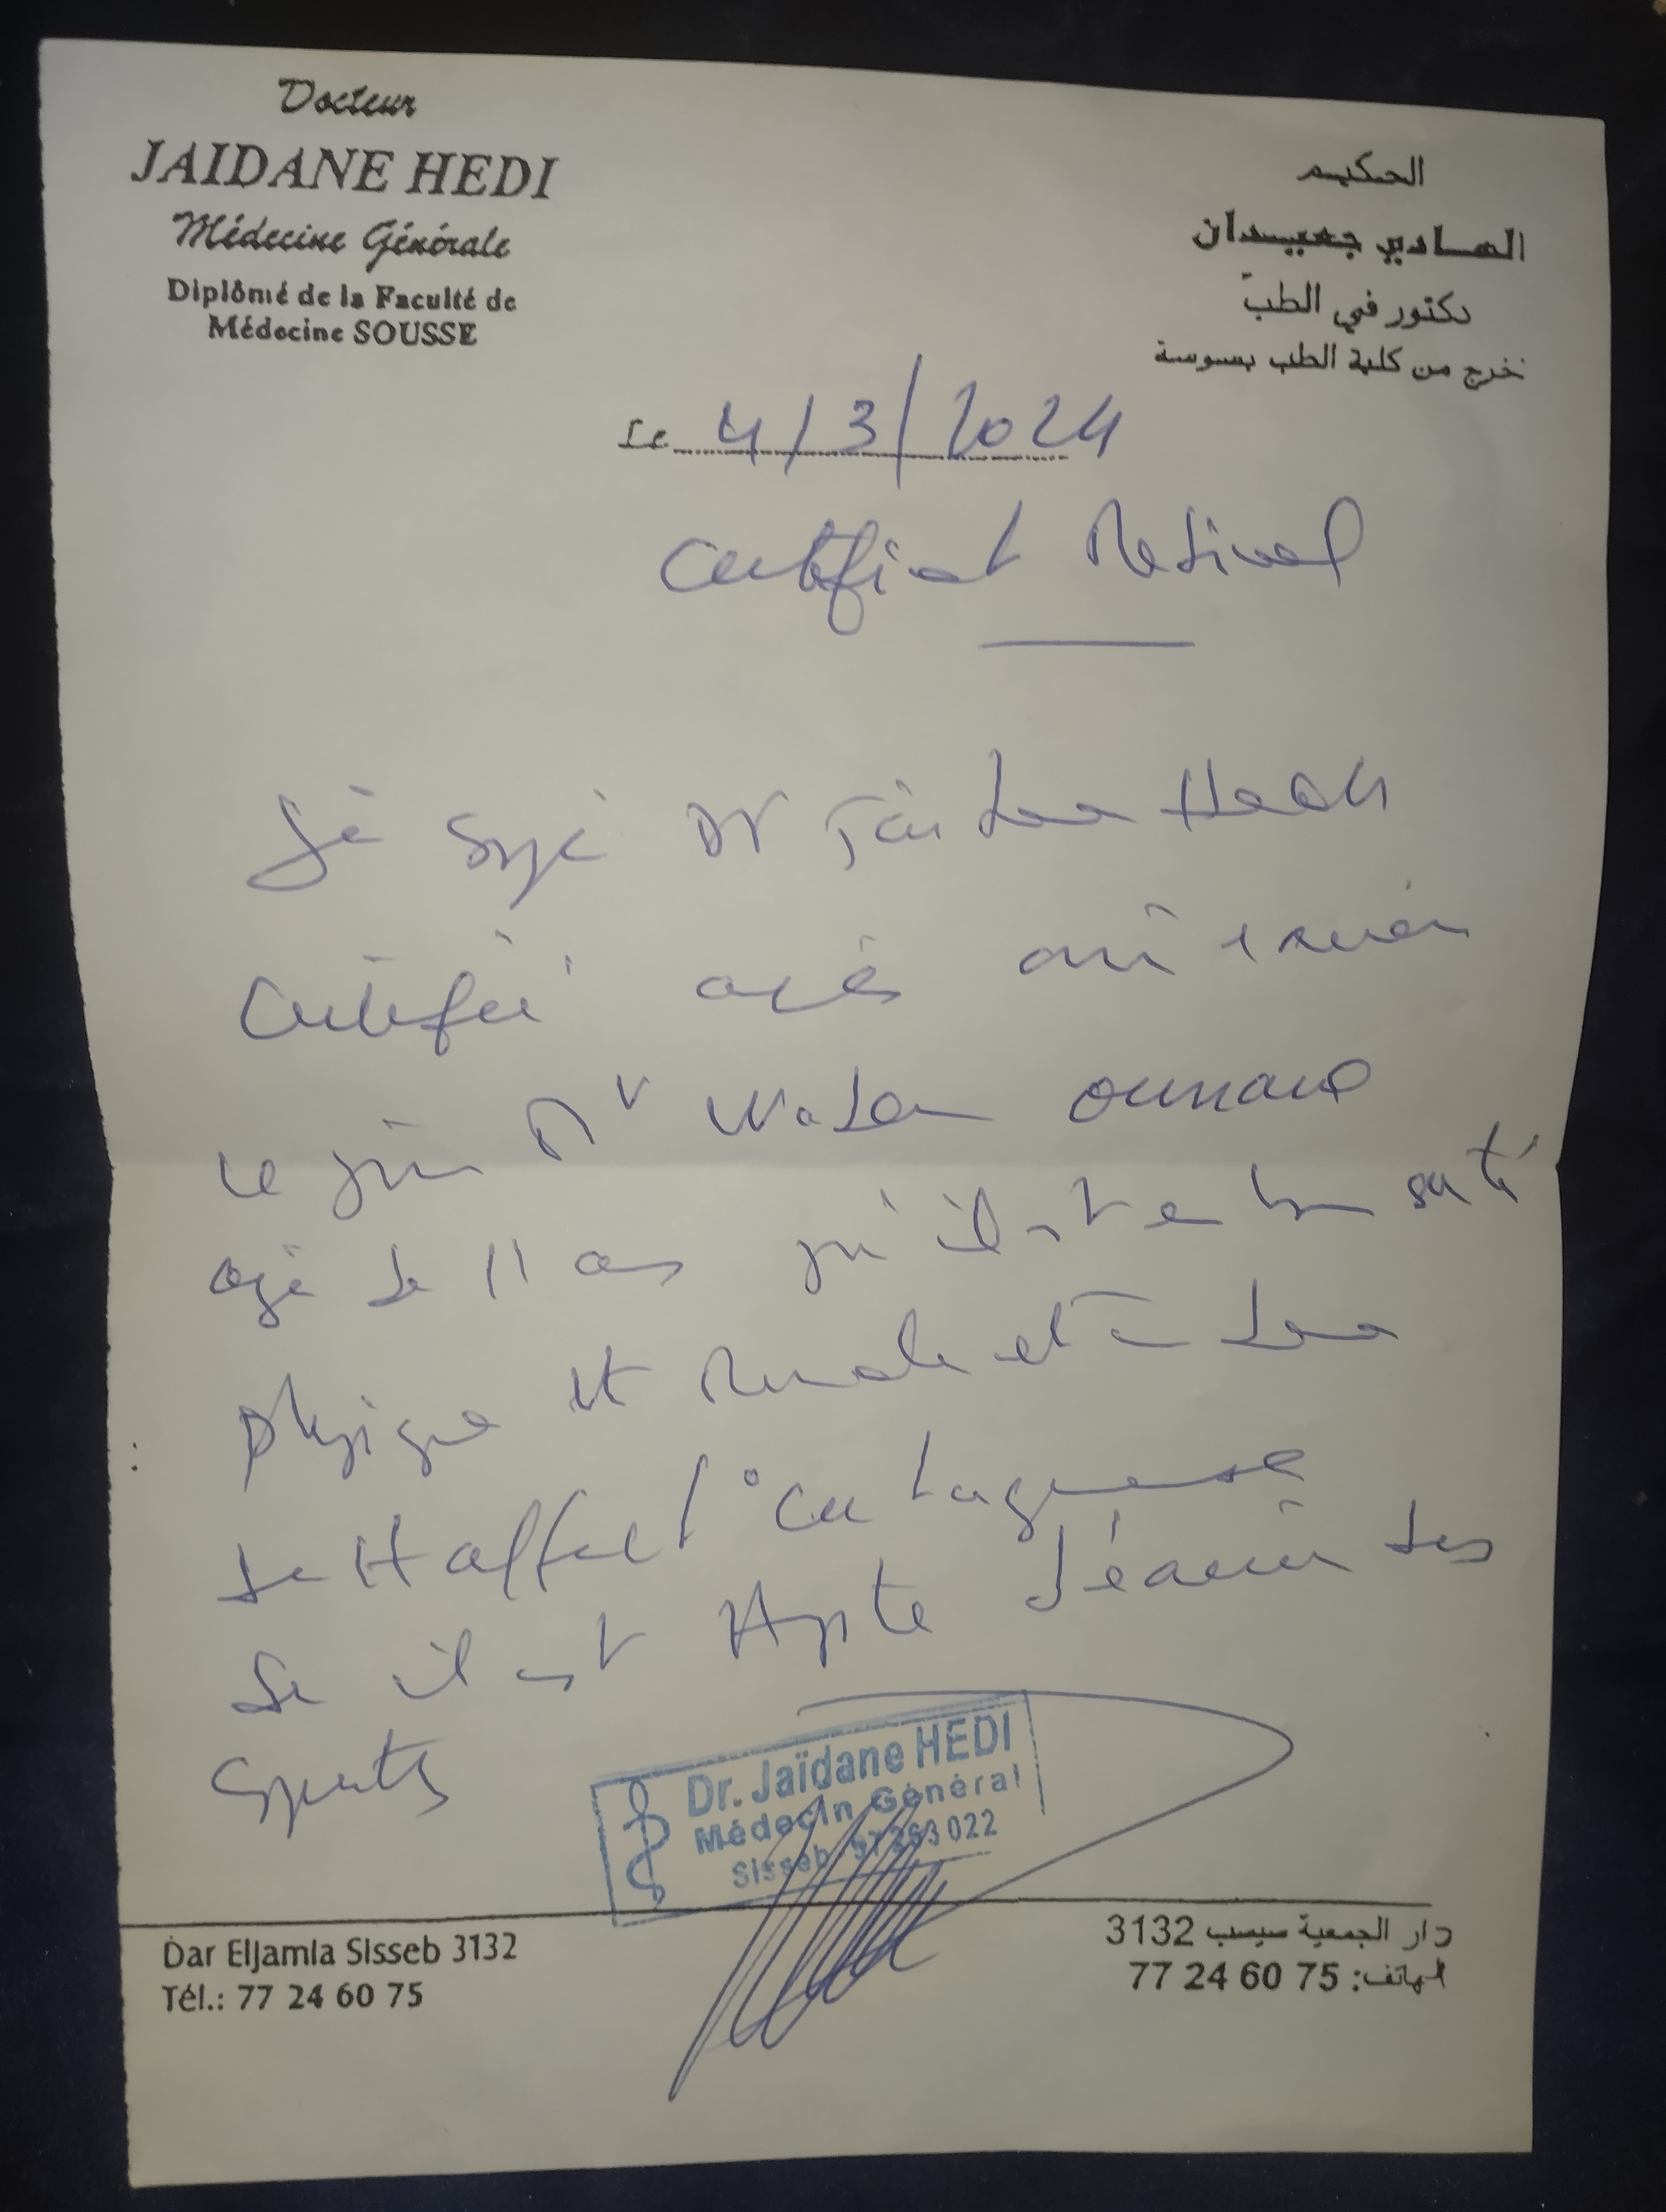 Docteur
JAIDANE HEDI
Médecine Générale
Diplômé de la Faculté de
Médecine SOUSSE
الحكيم
الهادي جعيدان
دكتور في الطب
خرج من كلية الطب بسوسة
Le 4/3/2024
Certificat Medical
Je Dr Jaidane Hedi
Certifié après examen
ce jour Mr
agé de 11 ans qu'il est en bonne santé
physique et mentale et
de
il est Apte d'exercer des
Sports
Dr. Jaïdane HEDI
Médecin Général
Sisseb 97 263 022
Dar Eljamia Sisseb 3132
Tél.: 77 24 60 75
دار الجمعية سيسب 3132
الهاتف: 75 60 24 77